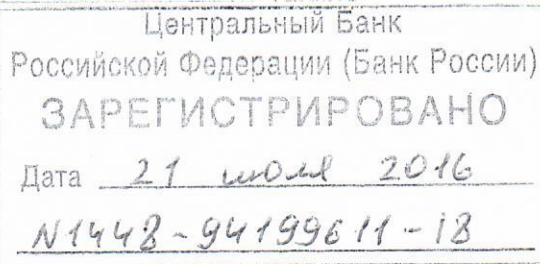 Центральный Банк
Российской Федерации (Банк России)
ЗАРЕГИСТРИРОВАНО
Дата 21 июля 2016
N1448-94199611-18